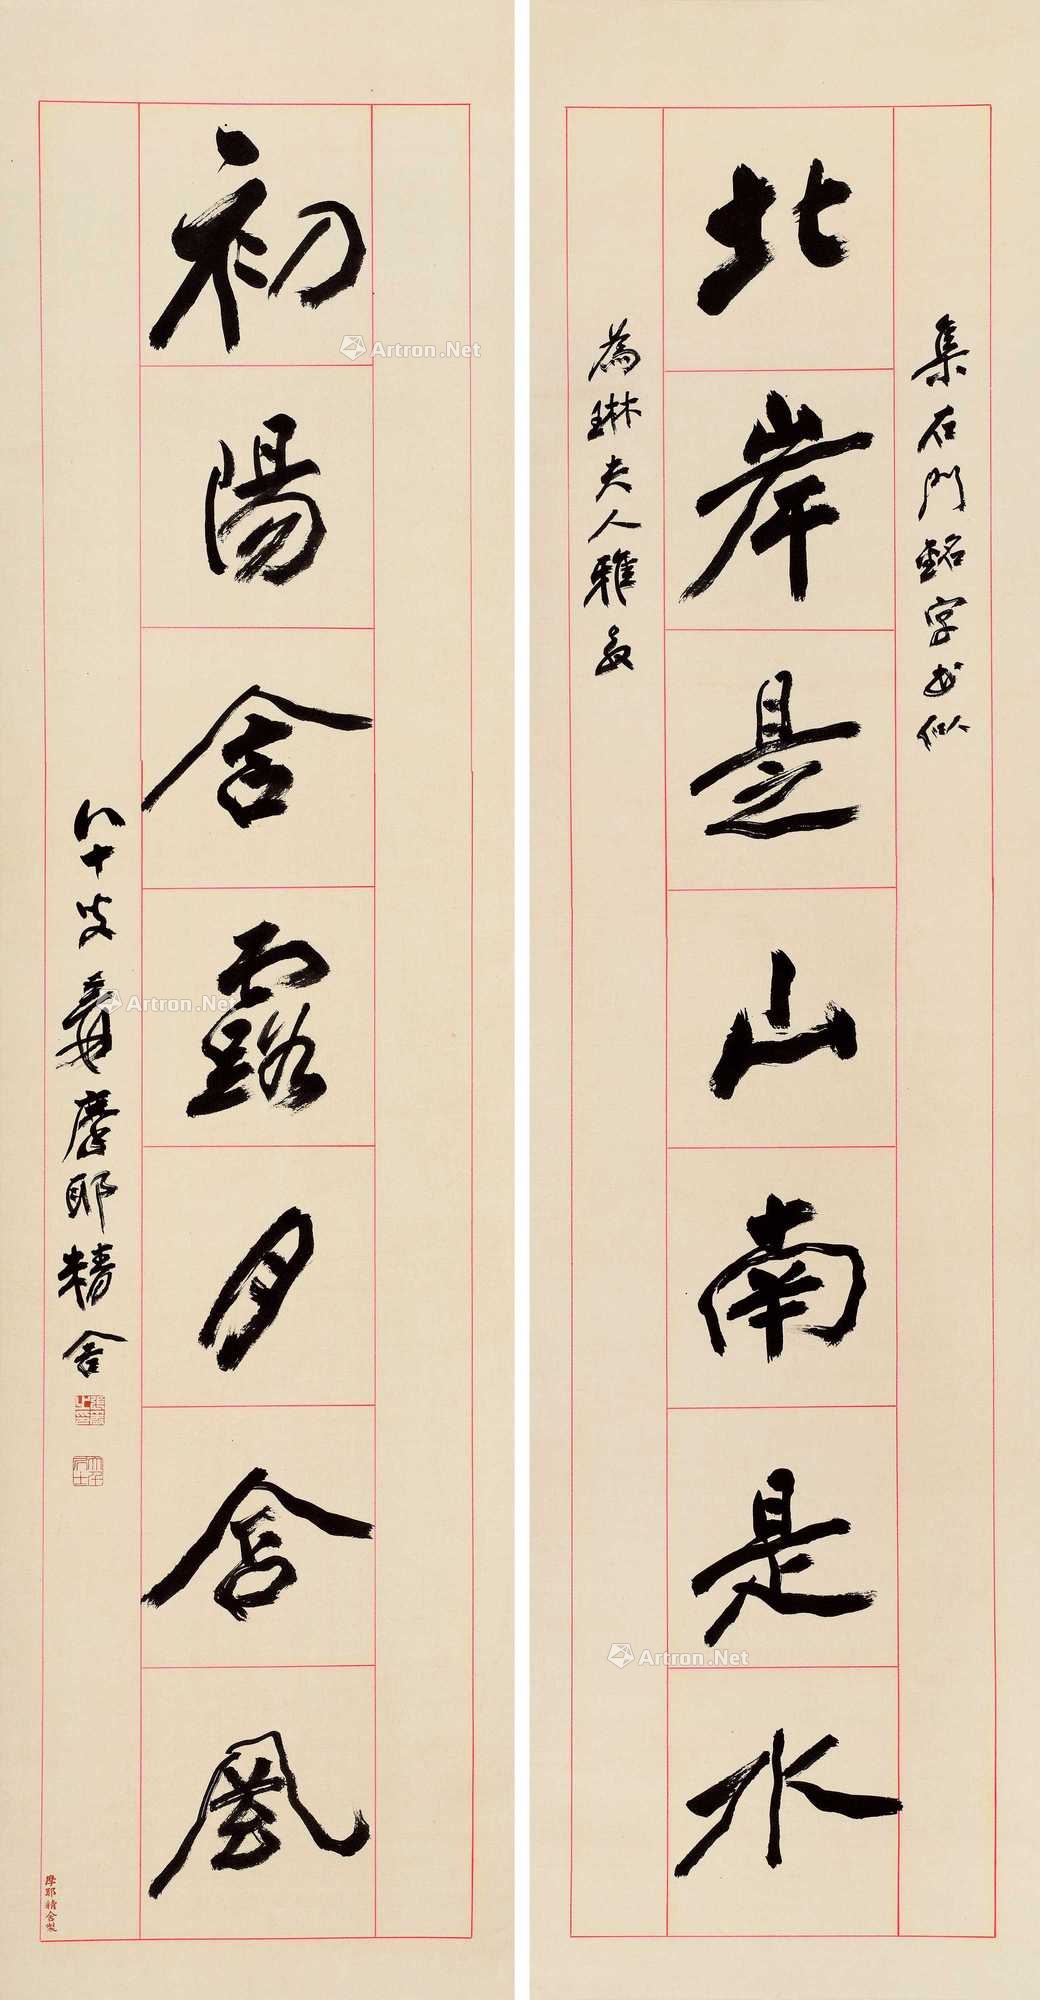 集石門銘字書似
北岸是山南是水
為琳夫人雅教
初陽含露月含風
八十叟爰摩耶精舍
張爰之印
大千居士
摩耶精舍製
Artron.Net
Artron.Net
Artron.Net